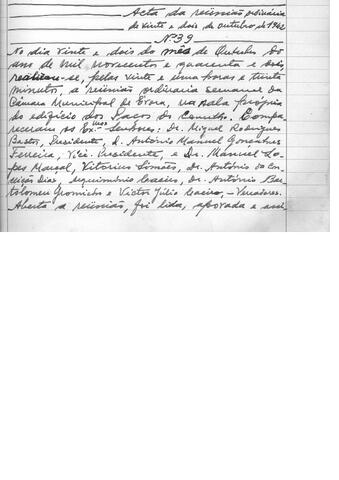 Acta da reünião ordinária
de vinte e dois de outubro de 1942
Nº39
No dia vinte e dois do mês de Outubro do
ano de mil novecentos e quarenta e dois,
realizou-se, pelas vinte e uma horas e trinta
minutos, a reünião ordinária semanal da
Câmara Municipal de Évora, na sala própria
do edifício dos Paços do Concelho. Compa-
receram os Ex.mos Senhores: Dr. Miguel Rodrigues
Bastos, Presidente, D. António Manuel Gonçalves
Ferreira, Vice-Presidente, e Dr. Manuel Lo-
pes Marçal, Vitorino Simões, Dr. António da Con-
ceição Dias, Dr. António Bar-
tolomeu Gromicho e Victor Júlio - Vereadores.
Aberta a reünião, foi lida, aprovada e assi